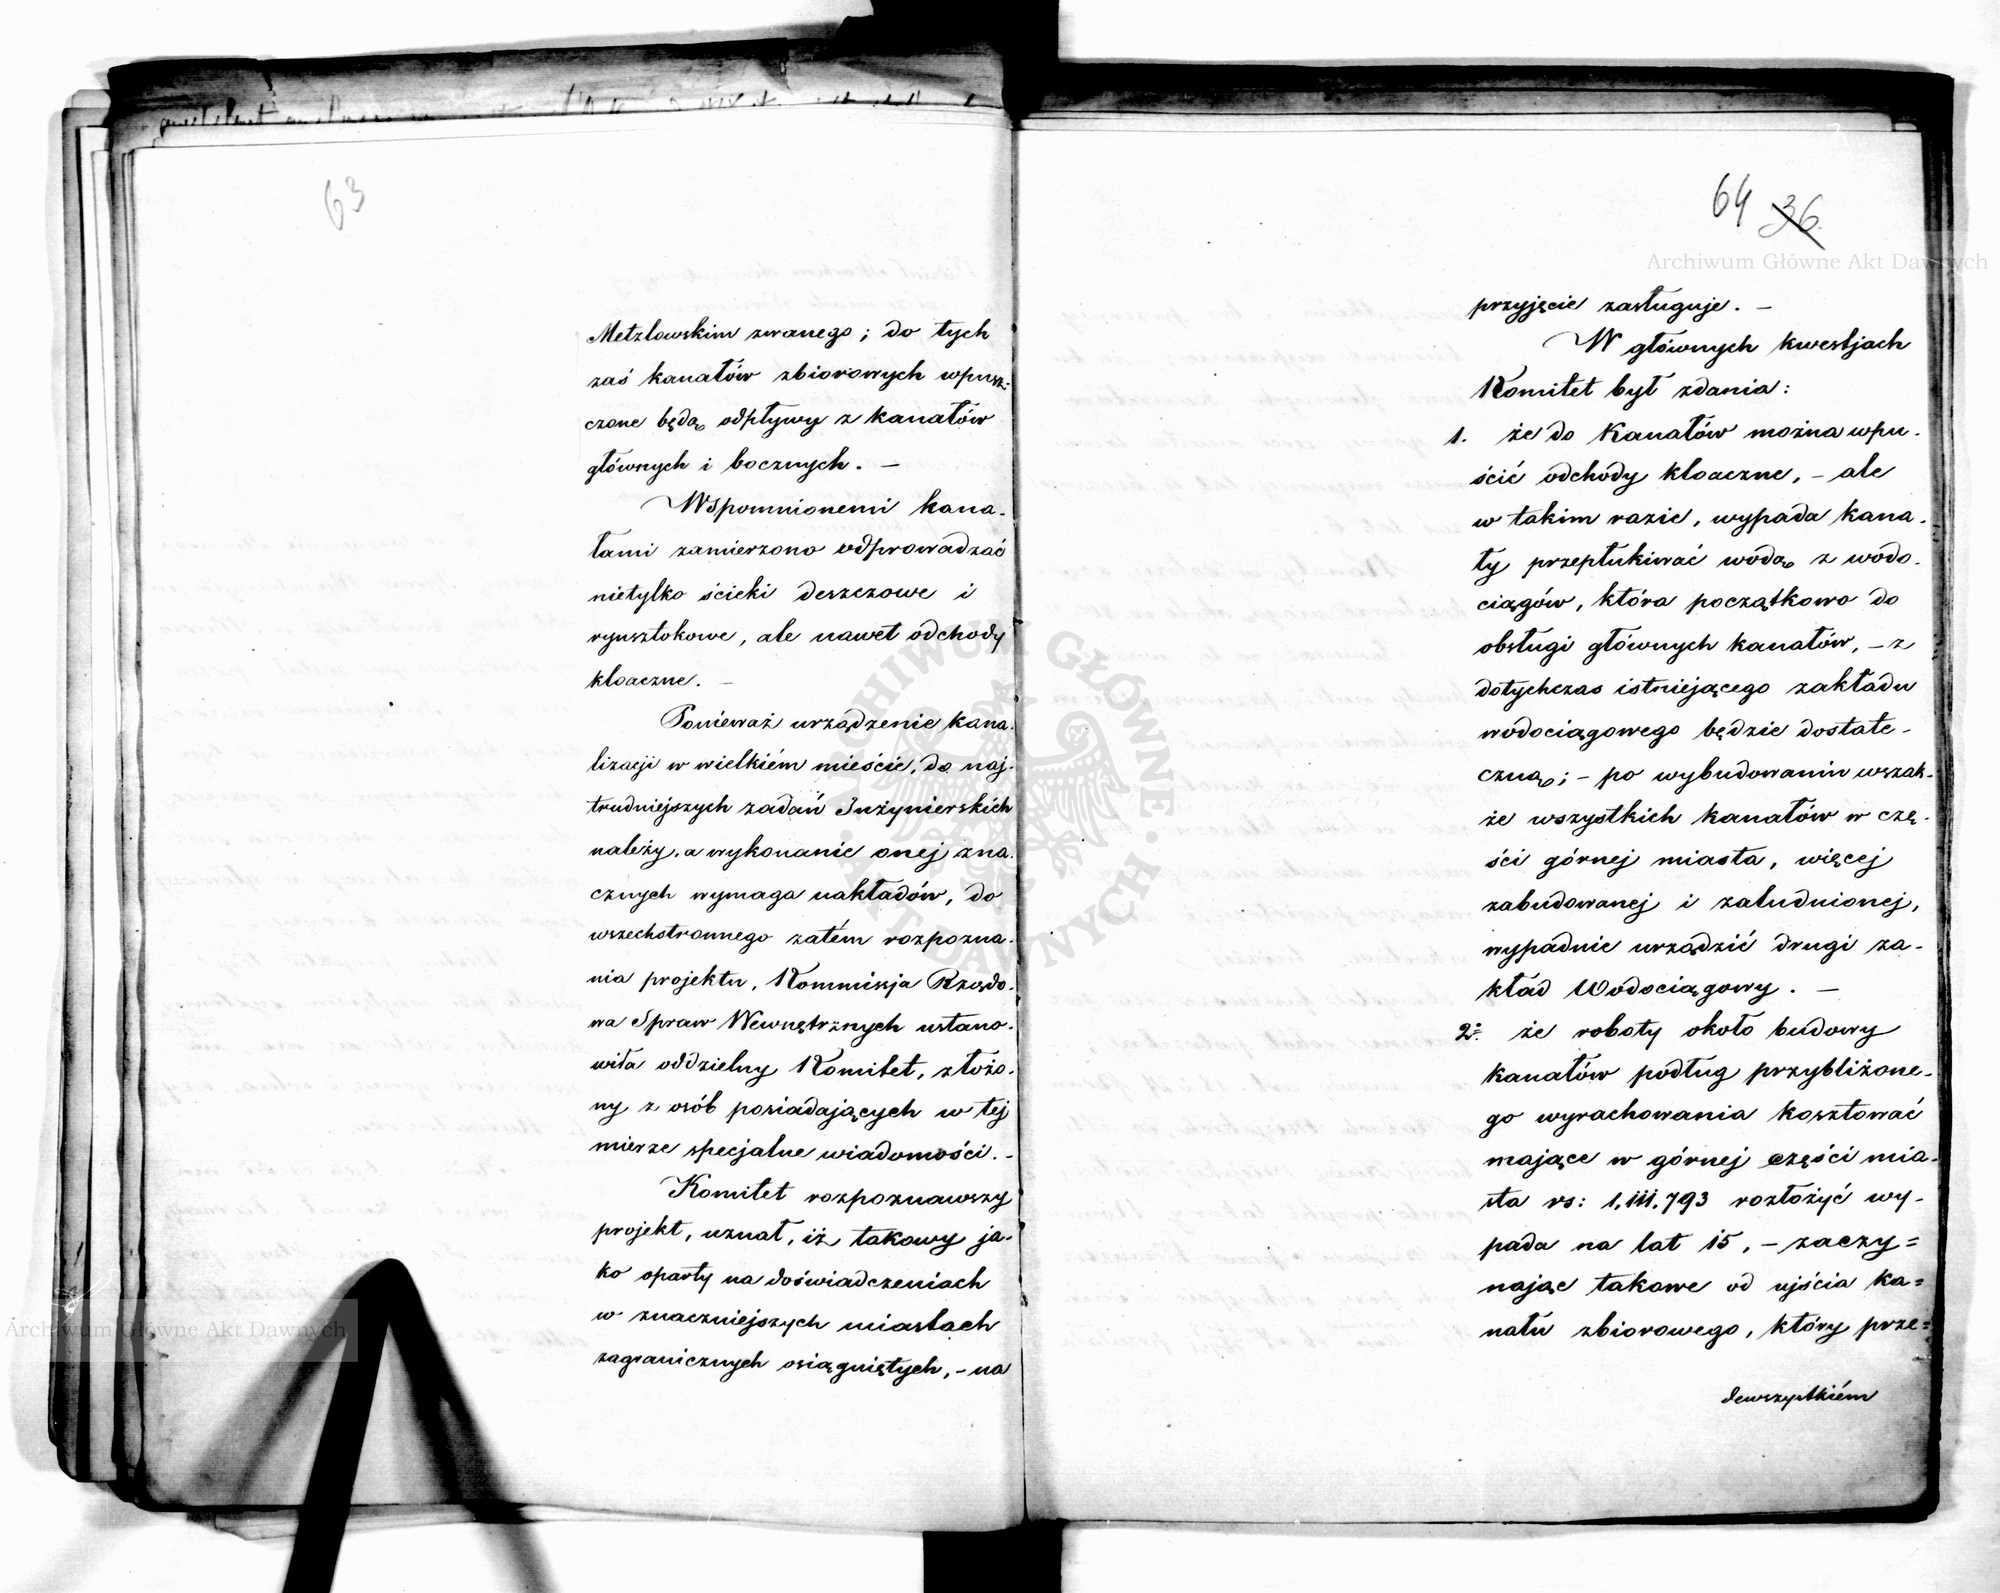 63
Metzlowskim zwanego; do tych
zaś kanałów zbiorowych wpusz=
czone będą odpływy z kanałów
głównych i bocznych. —
Wspomnionemi kana-
łami zamierzono odprowadzać
nietylko ścieki deszczowe i
rynsztokowe, ale nawet odchody
kloaczne. —
Ponieważ urządzenie kana-
lizacji w wielkiém mieście, do naj-
trudniejszych zadań Inżynierskich
należy, a wykonanie onej zna-
cznych wymaga nakładów, do
wszechstronnego zatém rozpozna-
nia projektu, Kommissja Rządo-
wa Spraw Wewnętrznych ustano-
wiła oddzielny Komitet, złożo-
ny z osób posiadających w tej
mierze specjalne wiadomości. —
Komitet rozpoznawszy
projekt, uznał, iż takowy ja-
ko oparty na doświadczeniach
w znaczniejszych miastach
zagranicznych osiągniętych, — na
64 36
przyjęcie zasługuje. —
W głównych kwestjach
Komitet był zdania:
1. że do Kanałów można wpu-
ścić odchody kloaczne, — ale
w takim razie, wypada kana-
ły przepłukiwać wodą z wodo-
ciągów, która początkowo do
obsługi głównych kanałów, — z
dotychczas istniejącego zakładu
wodociągowego będzie dostate-
czną; — po wybudowaniu wszak-
że wszystkich kanałów w czę-
ści górnej miasta, więcej
zabudowanej i zaludnionej,
wypadnie urządzić drugi za-
kład Wodociągowy. —
2. że roboty około budowy
kanałów podług przybliżone-
go wyrachowania kosztować
mające w górnej części mia-
sta rs: 1.111.793 rozłożyć wy-
pada na lat 15, — zaczy=
nając takowe od ujścia ka=
nału zbiorowego, który prze=
dewszystkiém
Archiwum Główne Akt Dawnych
Archiwum Główne Akt Dawnych
ARCHIWUM GŁÓWNE AKT DAWNYCH